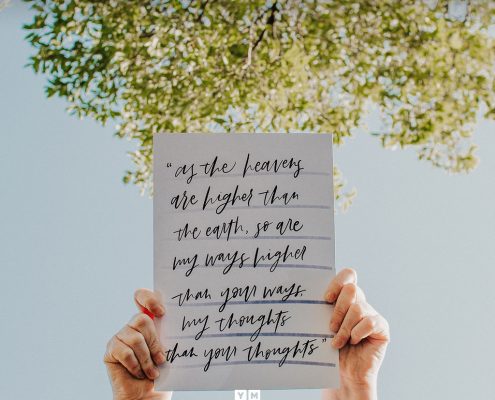 "as the heavens
are higher than
the earth, so are
my ways higher
than your ways,
my thoughts
than your thoughts"
Y M